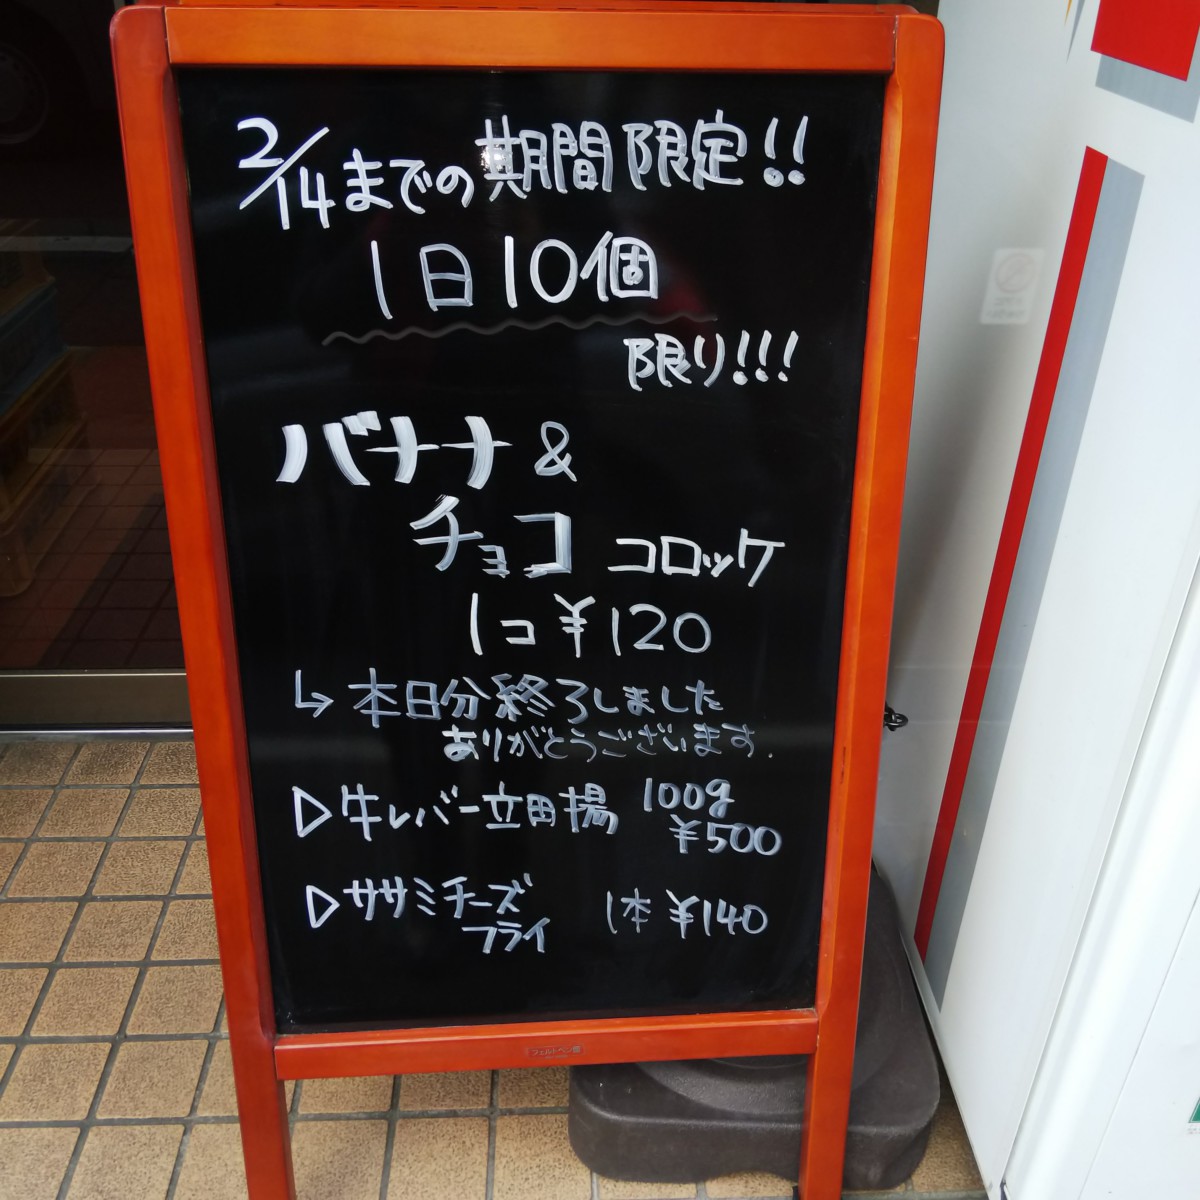 2/14までの期間限定!!
1日10個
限り!!!
バナナ&
チョコ コロッケ
1コ¥120
↳本日分終了しました
ありがとうございます.
▷牛レバー立田揚 100g
¥500
▷ササミチーズ
フライ 1本 ¥140